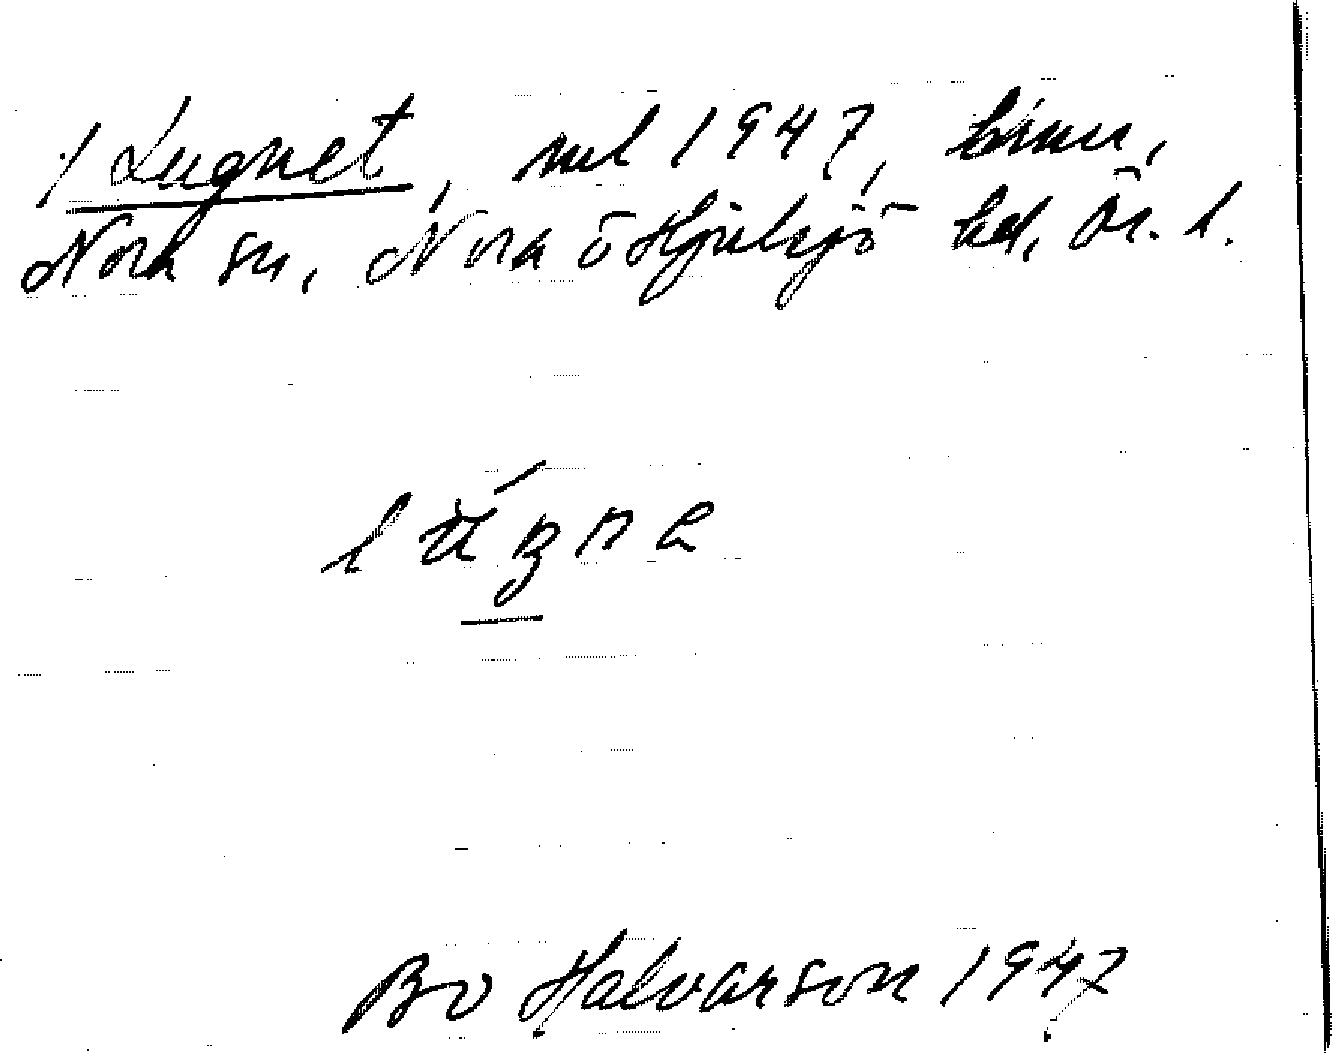 1/ Lugnet, nul 1947, hmn,
Nora sn, Nora o Hjulsjö hd, Ör. l.
lúgne
Bo Halvarson 1947